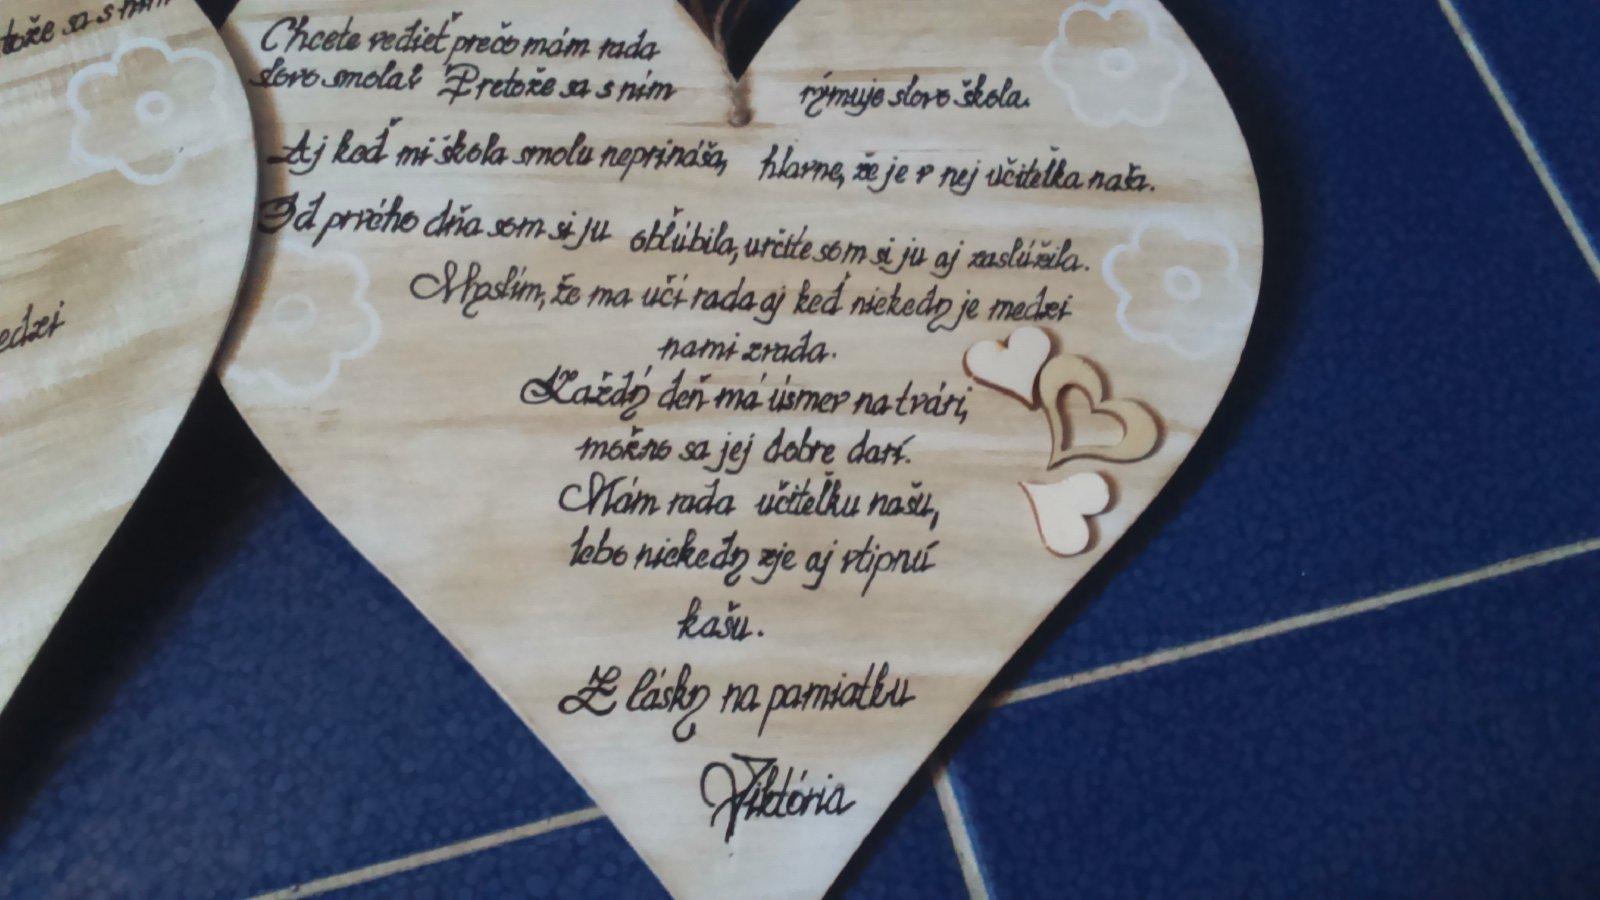 tože sa s ním
edzi
Chcete vedieť prečo mám rada
slovo smola? Pretože sa s ním rýmuje slovo škola.
Aj keď mi škola smolu neprináša, hlavne, že je v nej učiteľka naša.
Od prvého dňa som si ju obľúbila, určite som si ju aj zaslúžila.
Myslím, že ma učí rada aj keď niekedy je medzi
nami zrada.
Každý deň má úsmev na tvári,
možno sa jej dobre darí.
Mám rada učiteľku našu,
lebo niekedy zje aj vtipnú
kašu.
Z lásky na pamiatku
Viktória